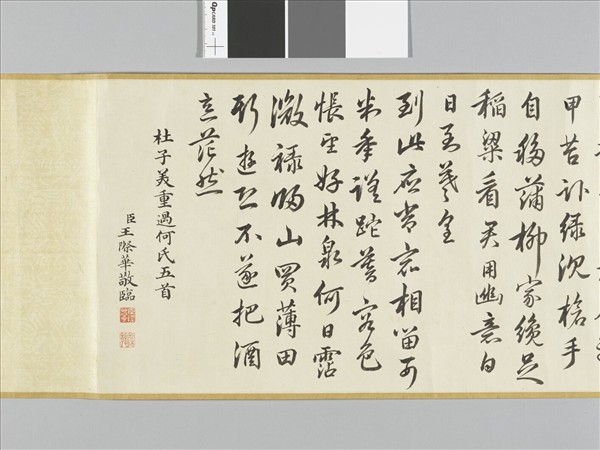 甲苔臥綠沉槍手
自移蒲柳家纔足
稻粱看君用幽意白
日至羲皇
到此應常宿相留可
判年蹉跎暮容色
悵望好林泉何日霑
微祿歸山買薄田
斯遊恐不遂把酒
意茫然
杜子美重過何氏五首
臣王際華敬臨